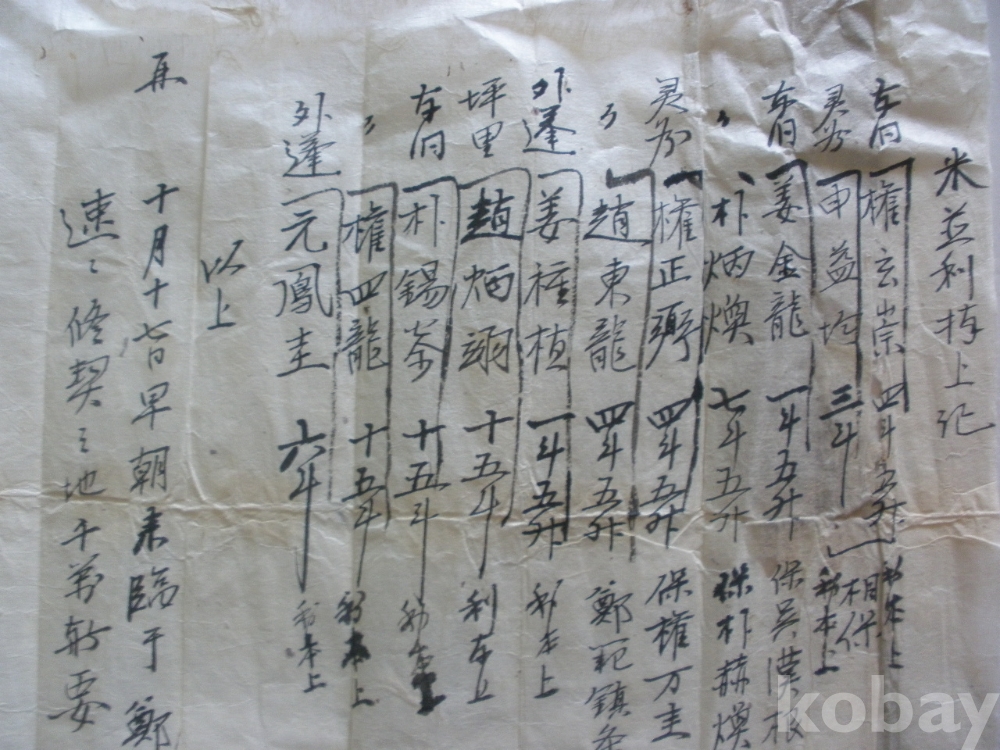 米並利持上記
左旧 權云崇 四斗五升 利本上
灵芬 申益均 三斗 相保 利本上
左旧 姜金龍 一斗五升 保吳漢根
〃 朴炳煥 七斗五升 保朴赫煥
灵芬 權正弼 四斗五升 保權万圭
〃 趙東龍 四斗五升 鄭範鎮
外蓬 姜種植 一斗五升 利本上
坪里 趙炳翊 十五斗 利本上
左旧 朴錫 十五斗 利本上
〃 權四龍 十五斗 利本上
外蓬 元鳳圭 六斗 利本上
以上
再
十月十七日早朝來臨于鄭
速々修契之地千萬斯要
kobay